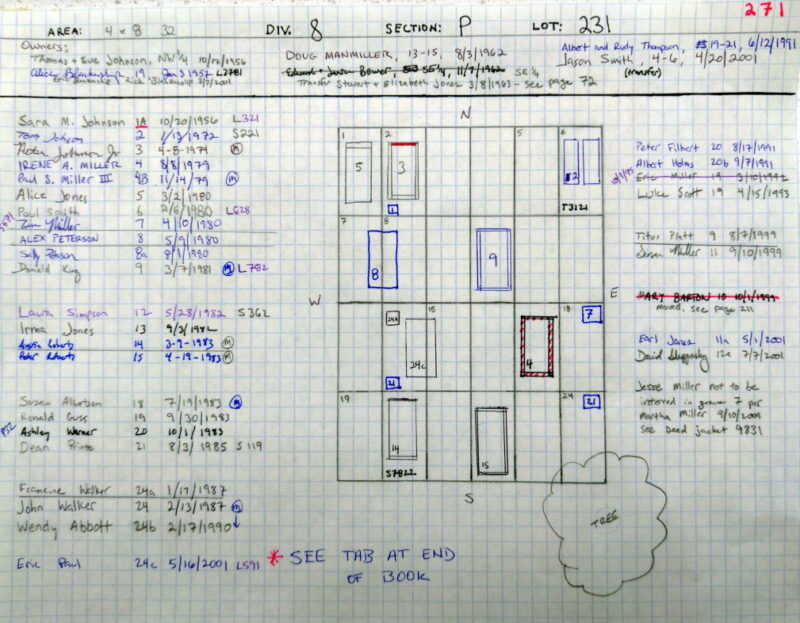 271
AREA: 4 x 8 32 DIV. 8 SECTION: P LOT: 231
Owners:
Thomas + Sue Johnson, NW 1/4 10/12/1956
Alice Blankenship 19 Jan 3 1957 L2781
DOUG MANMILLER, 13-15, 8/3/1962
Edward + Susan Bower, SE 1/4, 11/7/1962 SE 1/4
Transfer Stewart + Elizabeth Jones 3/8/1963 - see page 72
Albert and Rudy Thompson, 19-21, 6/12/1991
Jason Smith, 4-6, 4/20/2001
(transfer)
Sara M. Johnson 1A 10/20/1956 L321
Tom Johnson 2 1/13/1972 S221
Peter Johnson Jr 3 4-8-1979 m
IRENE A. MILLER 4 8/8/1979
Paul S. Miller III 4B 11/14/79 m
Alice Jones 5 3/2/1980
Paul Smith 6 2/6/1980 L628
Tim Miller 7 4/10/1980
ALEX PETERSON 8 5/9/1980
Sally Peterson 8a 8/1/1980
Donald King 9 3/7/1981 m L782
Laura Simpson 12 5/28/1982 S362
Irma Jones 13 9/3/1982
Austin Roberts 14 3-9-1983 m
Peter Roberts 15 4-19-1983 m
Susan Albertson 18 7/19/1983 m
Ronald Guss 19 9/30/1983
P32 Ashley Warner 20 10/1/1983
Dean Prince 21 8/3/1985 S119
Francine Walker 24a 1/17/1987
John Walker 24 2/13/1987 m
Wendy Abbott 24b 2/17/1990
Eric Paul 24c 5/16/2001 L591
* SEE TAB AT END
OF BOOK
N
1 2 5 6
5 3 2
1 T3121
7 8
8 9
W E
24A 15 18 7
24c 4
21
19 24 21
14 15
S7822
S
TREE
Peter Filbert 20 8/17/1991
Albert Holms 20b 9/7/1991
Eric Miller 19 3/10/1992
Luke Scott 19 4/15/1993
Titus Platt 9 8/7/1999
Susan Miller 11 9/10/1999
MARY BARTON 10 10/1/1999
moved, see page 211
Earl Jones 11a 5/1/2001
David 12a 7/7/2001
Jesse Miller not to be
interred in grave 7 per
Martha Miller 9/10/2001
see Deed jacket 9831